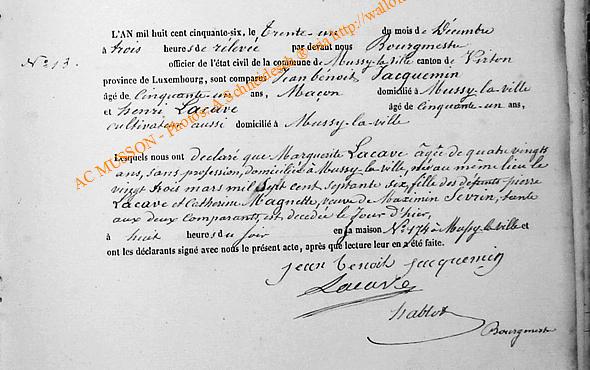 L'AN mil huit cent cinquante-six, le trente-un du mois de Décembre
à trois heures de rélevée par devant nous Bourgmestre
No 13. officier de l'état civil de la commune de Mussy-la-ville canton de Virton
province de Luxembourg, sont comparus Jean benoit Jacquemin
âgé de cinquante-un ans, Maçon domicilié à Mussy-la-ville
et henri Lacave âgé de cinquante-un ans,
cultivateur aussi domicilié à Mussy-la-ville
Lesquels nous ont déclaré que Marguerite Lacave âgée de quatre vingts
ans, sans profession, domiciliée à Mussy-la-ville, née au même lieu le
vingt trois mars mil sept cent septante six, fille des défunts pierre
Lacave et Catherine Magnette, veuve de Maximin Sevrin, tante
aux deux comparants, est decédée le jour d'hier,
à huit heures du soir en sa maison No 174 à Mussy-la-ville et
ont les déclarants signé avec nous le présent acte, après que lecture leur en a été faite.
jean benoit jacquemin
Lacave
hablot
Bourgmestre
AC MUSSON - Photos: A Schneidesch ® via http://wallo